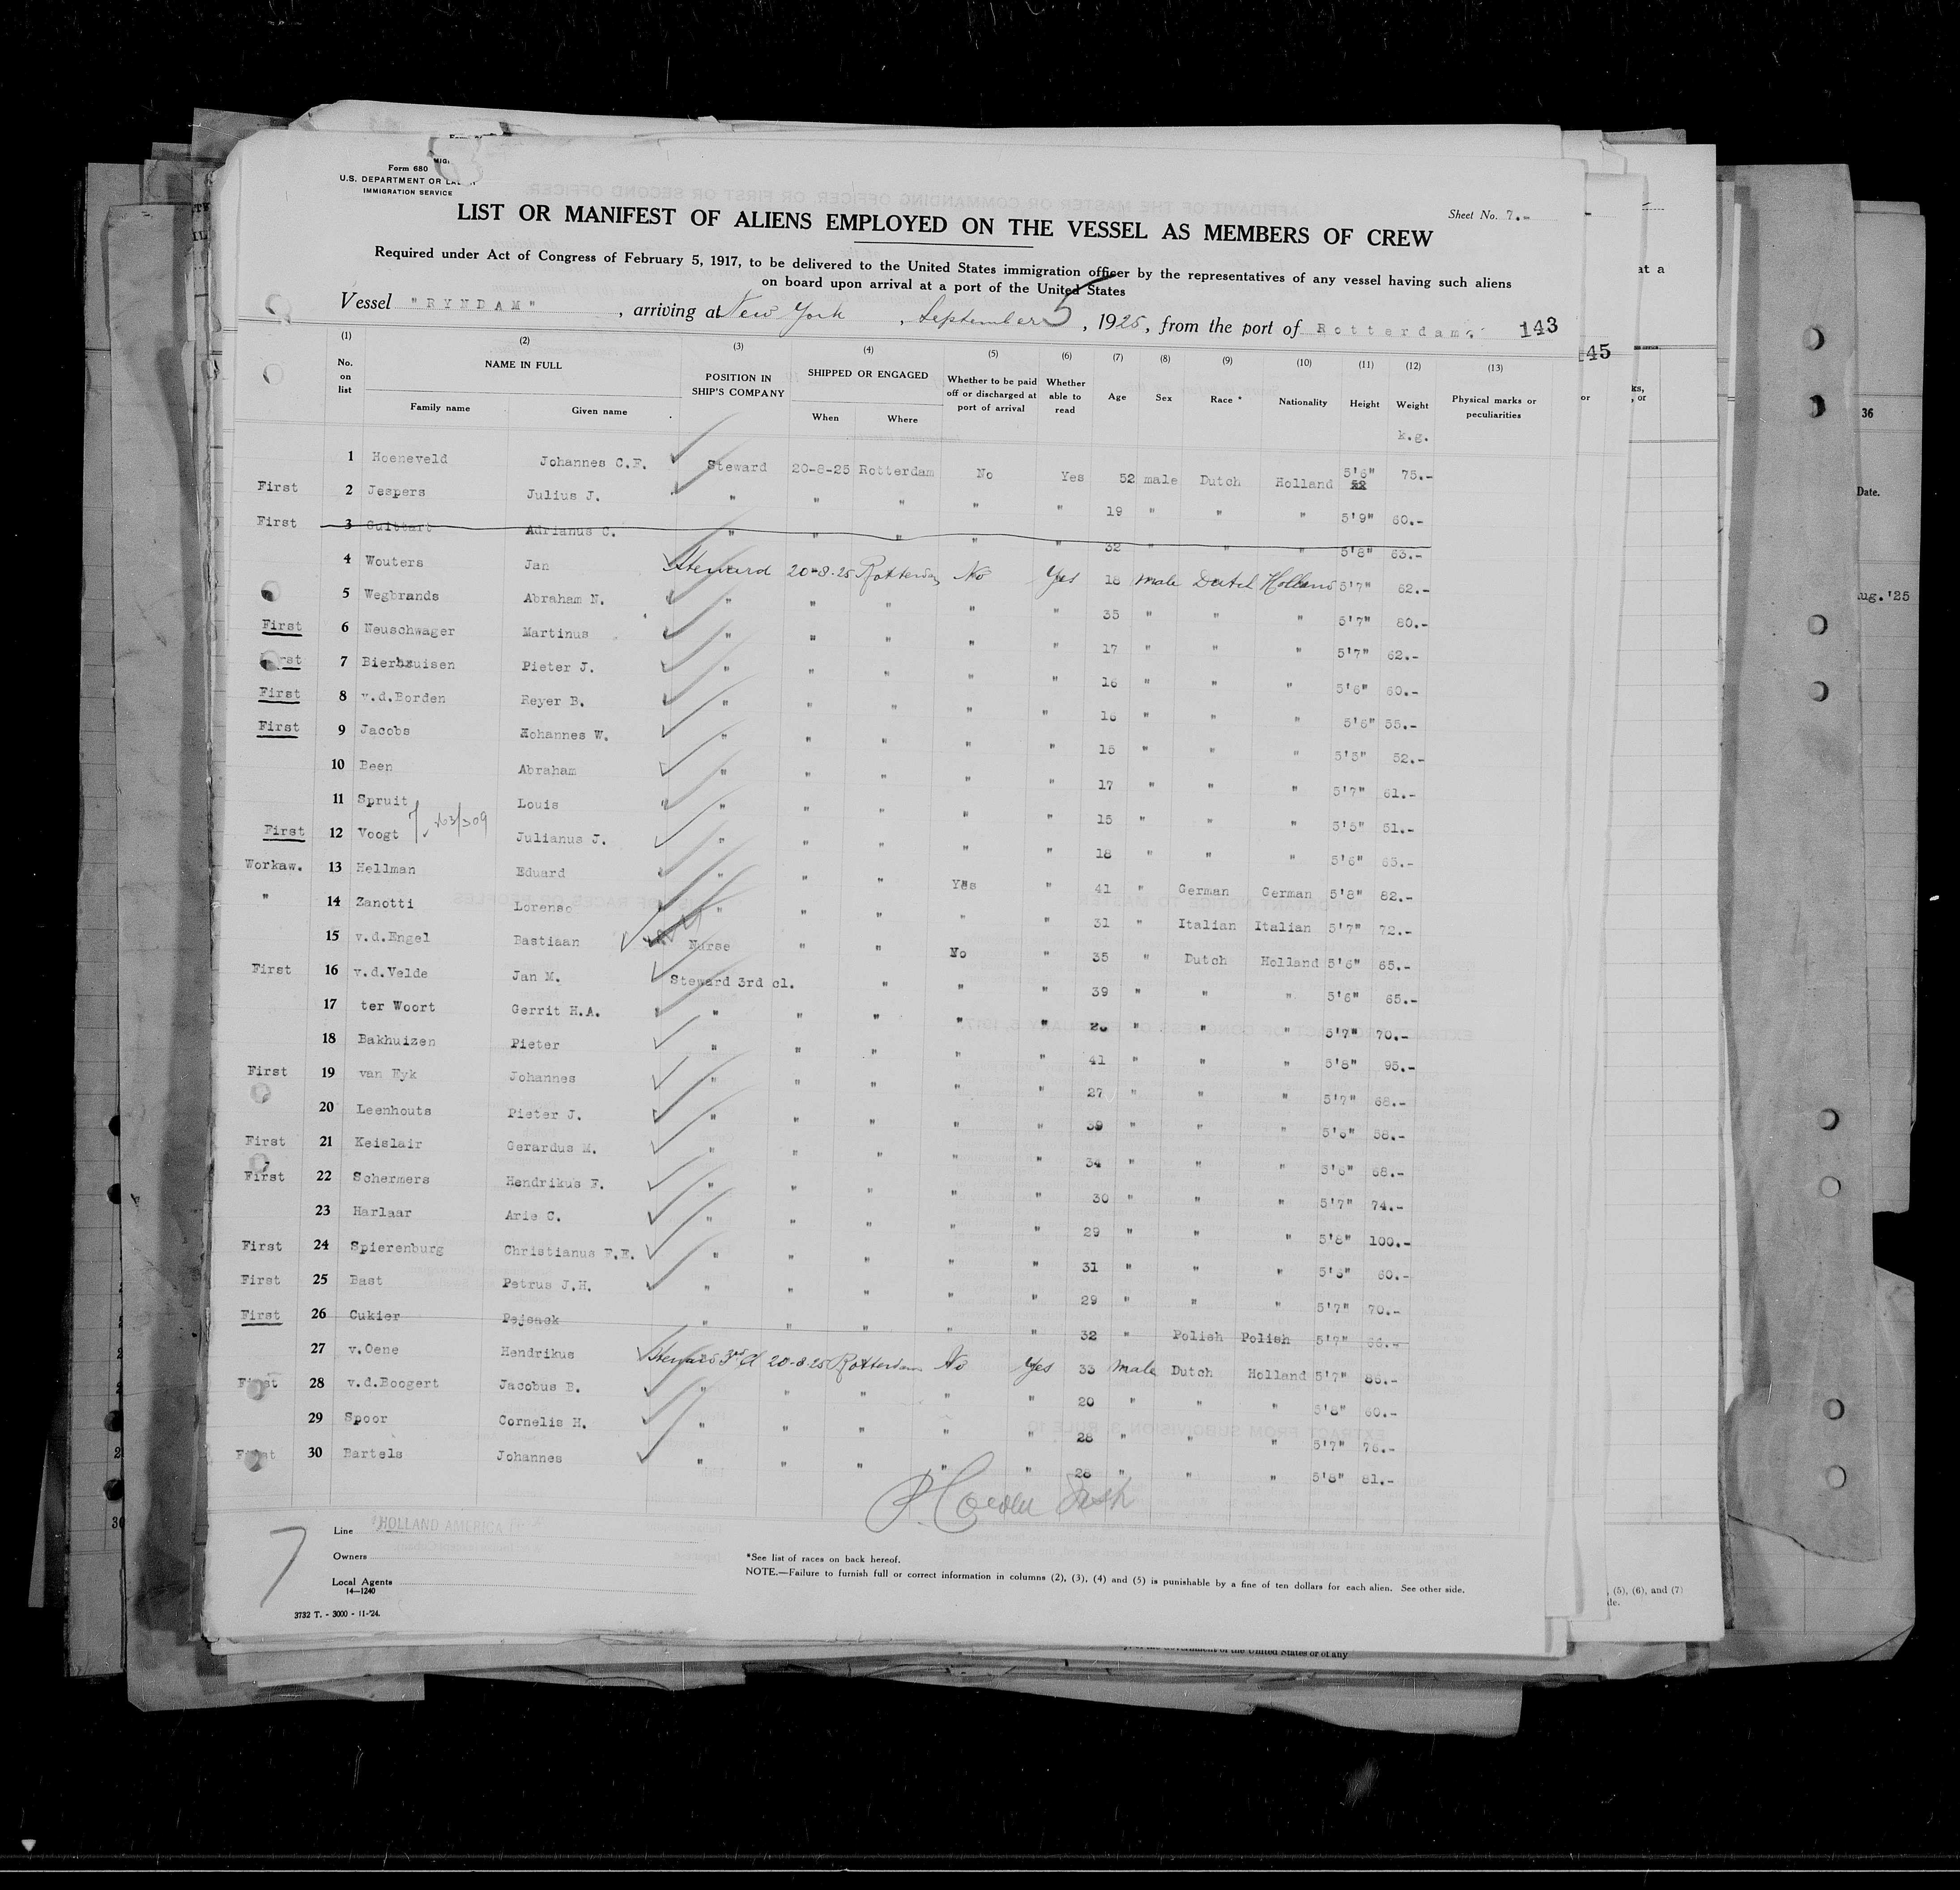 Form 680
U.S. DEPARTMENT OR
IMMIGRATION SERVICE
Sheet No. 7.-
LIST OR MANIFEST OF ALIENS EMPLOYED ON THE VESSEL AS MEMBERS OF CREW
Required under Act of Congress of February 5, 1917, to be delivered to the United States immigration officer by the representatives of any vessel having such aliens
on board upon arrival at a port of the United States
Vessel "RYNDAM", arriving at New York, September 5, 1925, from the port of Rotterdam. 143
45
(1) (2) (3) (4) (5) (6) (7) (8) (9) (10) (11) (12) (13)
No. on list NAME IN FULL POSITION IN SHIP'S COMPANY SHIPPED OR ENGAGED Whether to be paid off or discharged at port of arrival Whether able to read Age Sex Race * Nationality Height Weight Physical marks or peculiarities
Family name Given name When Where
k.g.
1 Hoeneveld Johannes C.F. Steward 20-8-25 Rotterdam No Yes 52 male Dutch Holland 5'6" 75.-
First 2 Jespers Julius J. " " " " " 19 " " " 5'9" 60.-
First 3 Guittart Adrianus C. " " " " " 32 " " " 5'8" 63.-
4 Wouters Jan Steward 20-8-25 Rotterdam No Yes 18 male Dutch Holland 5'7" 62.-
5 Wegbrands Abraham N. " " " " " 35 " " " 5'7" 80.-
First 6 Neuschwager Martinus " " " " " 17 " " " 5'7" 62.-
First 7 Bierhuisen Pieter J. " " " " " 16 " " " 5'6" 60.-
First 8 v.d.Borden Reyer B. " " " " " 16 " " " 5'6" 55.-
First 9 Jacobs Johannes W. " " " " " 15 " " " 5'5" 52.-
10 Been Abraham " " " " " 17 " " " 5'7" 61.-
11 Spruit Louis " " " " " 15 " " " 5'5" 51.-
First 12 Voogt Julianus J. " " " " " 18 " " " 5'6" 65.-
Workaw. 13 Hellman Eduard " " " Yes " 41 " German German 5'8" 82.-
" 14 Zanotti Lorenso " " " " " 31 " Italian Italian 5'7" 72.-
15 v.d.Engel Bastiaan Nurse " " No " 35 " Dutch Holland 5'6" 65.-
First 16 v.d.Velde Jan M. Steward 3rd cl. " " " 39 " " " 5'6" 65.-
17 ter Woort Gerrit H.A. " " " " " " " " 5'7" 70.-
18 Bakhuizen Pieter " " " " " 41 " " " 5'8" 95.-
First 19 van Eyk Johannes " " " " " 27 " " " 5'7" 68.-
20 Leenhouts Pieter J. " " " " " 39 " " " 5'6" 58.-
First 21 Keislair Gerardus M. " " " " " 34 " " " 5'6" 68.-
First 22 Schermers Hendrikus F. " " " " " 30 " " " 5'7" 74.-
23 Harlaar Arie C. " " " " " 29 " " " 5'8" 100.-
First 24 Spierenburg Christianus F.F. " " " " " 31 " " " 5'6" 60.-
First 25 Bast Petrus J.H. " " " " " 29 " " " 5'7" 70.-
First 26 Cukier Pejsack " " " " " 32 " Polish Polish 5'7" 66.-
27 v.Oene Hendrikus Steward 3rd cl 20-8-25 Rotterdam No Yes 33 male Dutch Holland 5'7" 86.-
First 28 v.d.Boogert Jacobus B. " " " " " 20 " " " 5'8" 60.-
29 Spoor Cornelis H. " " " " " 28 " " " 5'7" 76.-
First 30 Bartels Johannes " " " " " 28 " " " 5'8" 81.-
7
Line HOLLAND AMERICA
Owners
Local Agents
14—1240
3732 T. - 3000 - 11-'24.
*See list of races on back hereof.
NOTE.—Failure to furnish full or correct information in columns (2), (3), (4) and (5) is punishable by a fine of ten dollars for each alien. See other side.
at a
ks,
, or
or
36
Date.
Aug.'25
, (5), (6), and (7)
de.
30
Government of the United States or of any